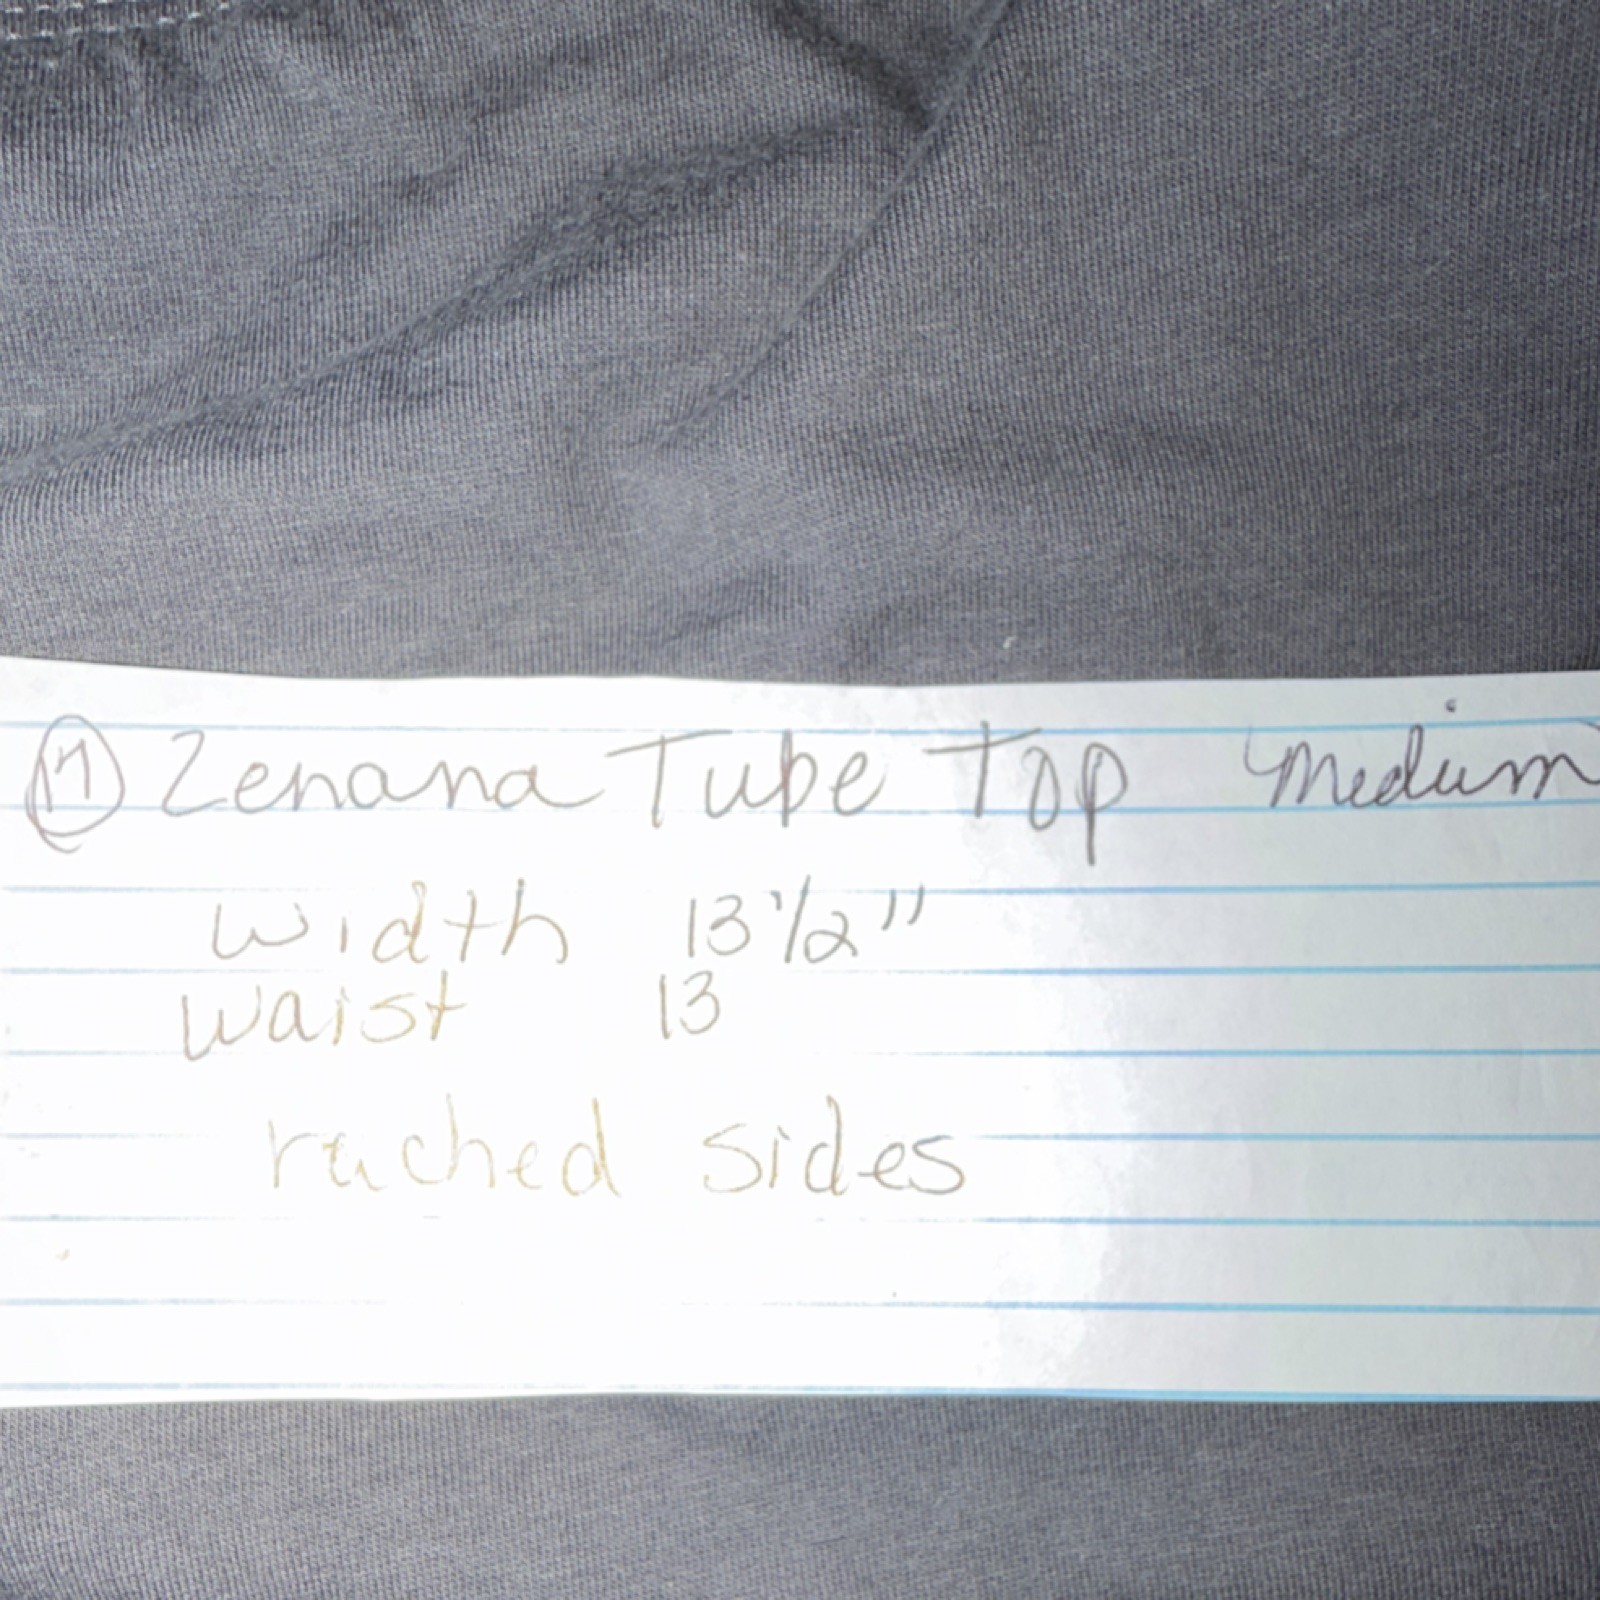 17 Zenana Tube Top Medium
Width 13 1/2"
Waist 13
ruched sides